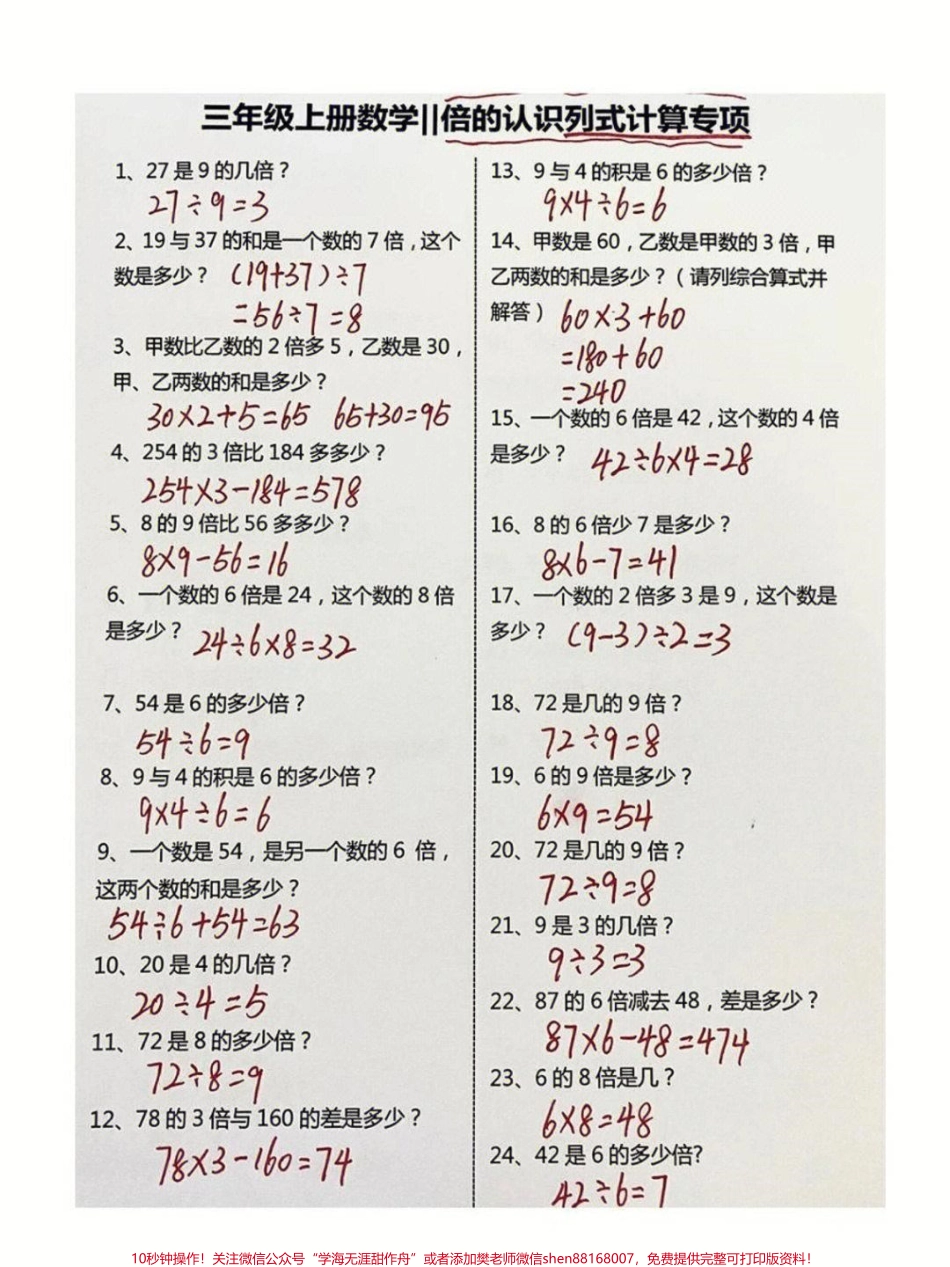 三年级上册数学||倍的认识列式计算专项
1、27是9的几倍？
27÷9=3
2、19与37的和是一个数的7倍，这个
数是多少？ (19+37)÷7
=56÷7=8
3、甲数比乙数的2倍多5，乙数是30，
甲、乙两数的和是多少？
30×2+5=65 65+30=95
4、254的3倍比184多多少？
254×3-184=578
5、8的9倍比56多多少？
8×9-56=16
6、一个数的6倍是24，这个数的8倍
是多少？ 24÷6×8=32
7、54是6的多少倍？
54÷6=9
8、9与4的积是6的多少倍？
9×4÷6=6
9、一个数是54，是另一个数的6 倍，
这两个数的和是多少？
54÷6+54=63
10、20是4的几倍？
20÷4=5
11、72是8的多少倍？
72÷8=9
12、78的3倍与160的差是多少？
78×3-160=74
13、9与4的积是6的多少倍？
9×4÷6=6
14、甲数是60，乙数是甲数的3倍，甲
乙两数的和是多少？（请列综合算式并
解答） 60×3+60
=180+60
=240
15、一个数的6倍是42，这个数的4倍
是多少？ 42÷6×4=28
16、8的6倍少7是多少？
8×6-7=41
17、一个数的2倍多3是9，这个数是
多少？ (9-3)÷2=3
18、72是几的9倍？
72÷9=8
19、6的9倍是多少？
6×9=54
20、72是几的9倍？
72÷9=8
21、9是3的几倍？
9÷3=3
22、87的6倍减去48，差是多少？
87×6-48=474
23、6的8倍是几？
6×8=48
24、42是6的多少倍?
42÷6=7
10秒钟操作！关注微信公众号“学海无涯甜作舟”或者添加樊老师微信shen88168007，免费提供完整可打印版资料！